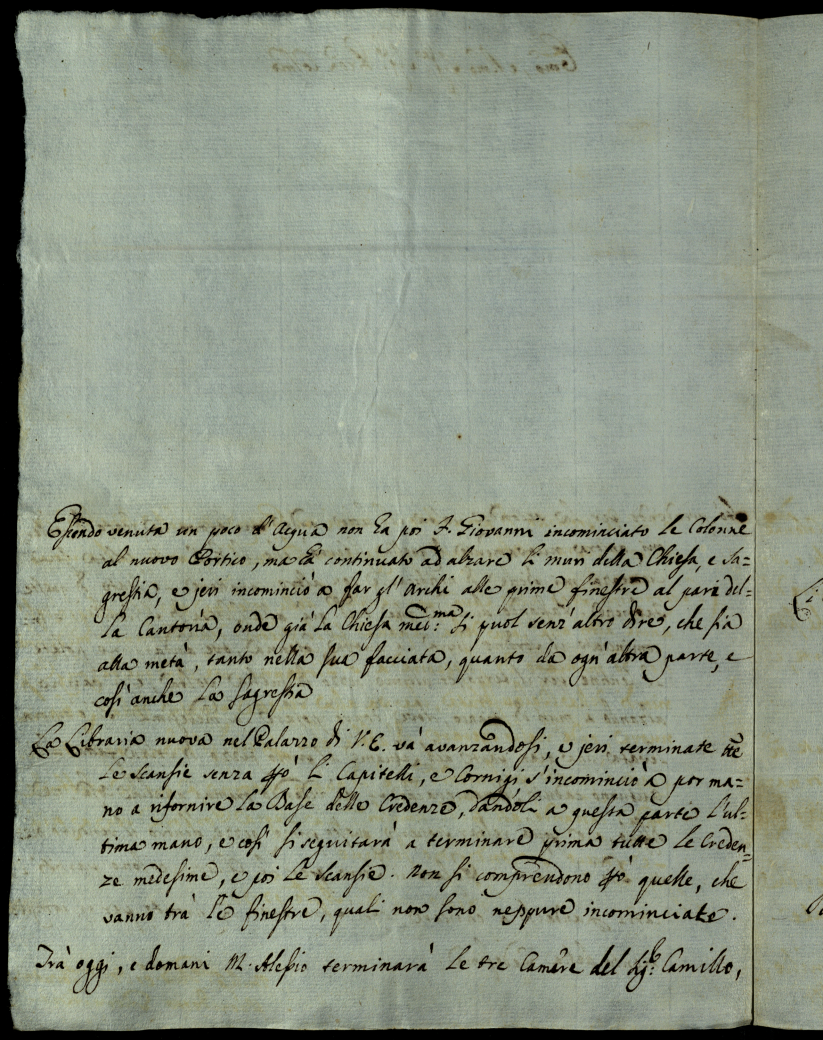 Essendo venuta un poco d'Acqua non ha poi F. Giovanni incominciato le Colonne
al nuovo Portico, ma hà continuato ad alzare li muri della Chiesa, e Sa=
grestia, e jeri incominciò a far gl'Archi alle prime finestre al pari del=
la Cantorìa, onde già la Chiesa med:ma si puol senz'altro dire, che sia
alla metà, tanto nella sua facciata, quanto da ogn'altra parte, e
così anche la Sagrestia
La Libraria nuova nel Palazzo di V. E. và avanzandosi, e jeri terminate tte
le Scansie senza pò li Capitelli, e Cornigi s'incominciò a por ma=
no a rifornire la Base delle Credenze, dandoli a questa parte l'ul=
tima mano, e così si seguitarà a terminare prima tutte le Creden=
ze medesime, e poi le Scansie. Non si comprendono pò quelle, che
vanno trà le finestre, quali non sono neppure incominciate.
Trà oggi, e domani M. Alessio terminarà le tre Camere del Sig:r Camillo,